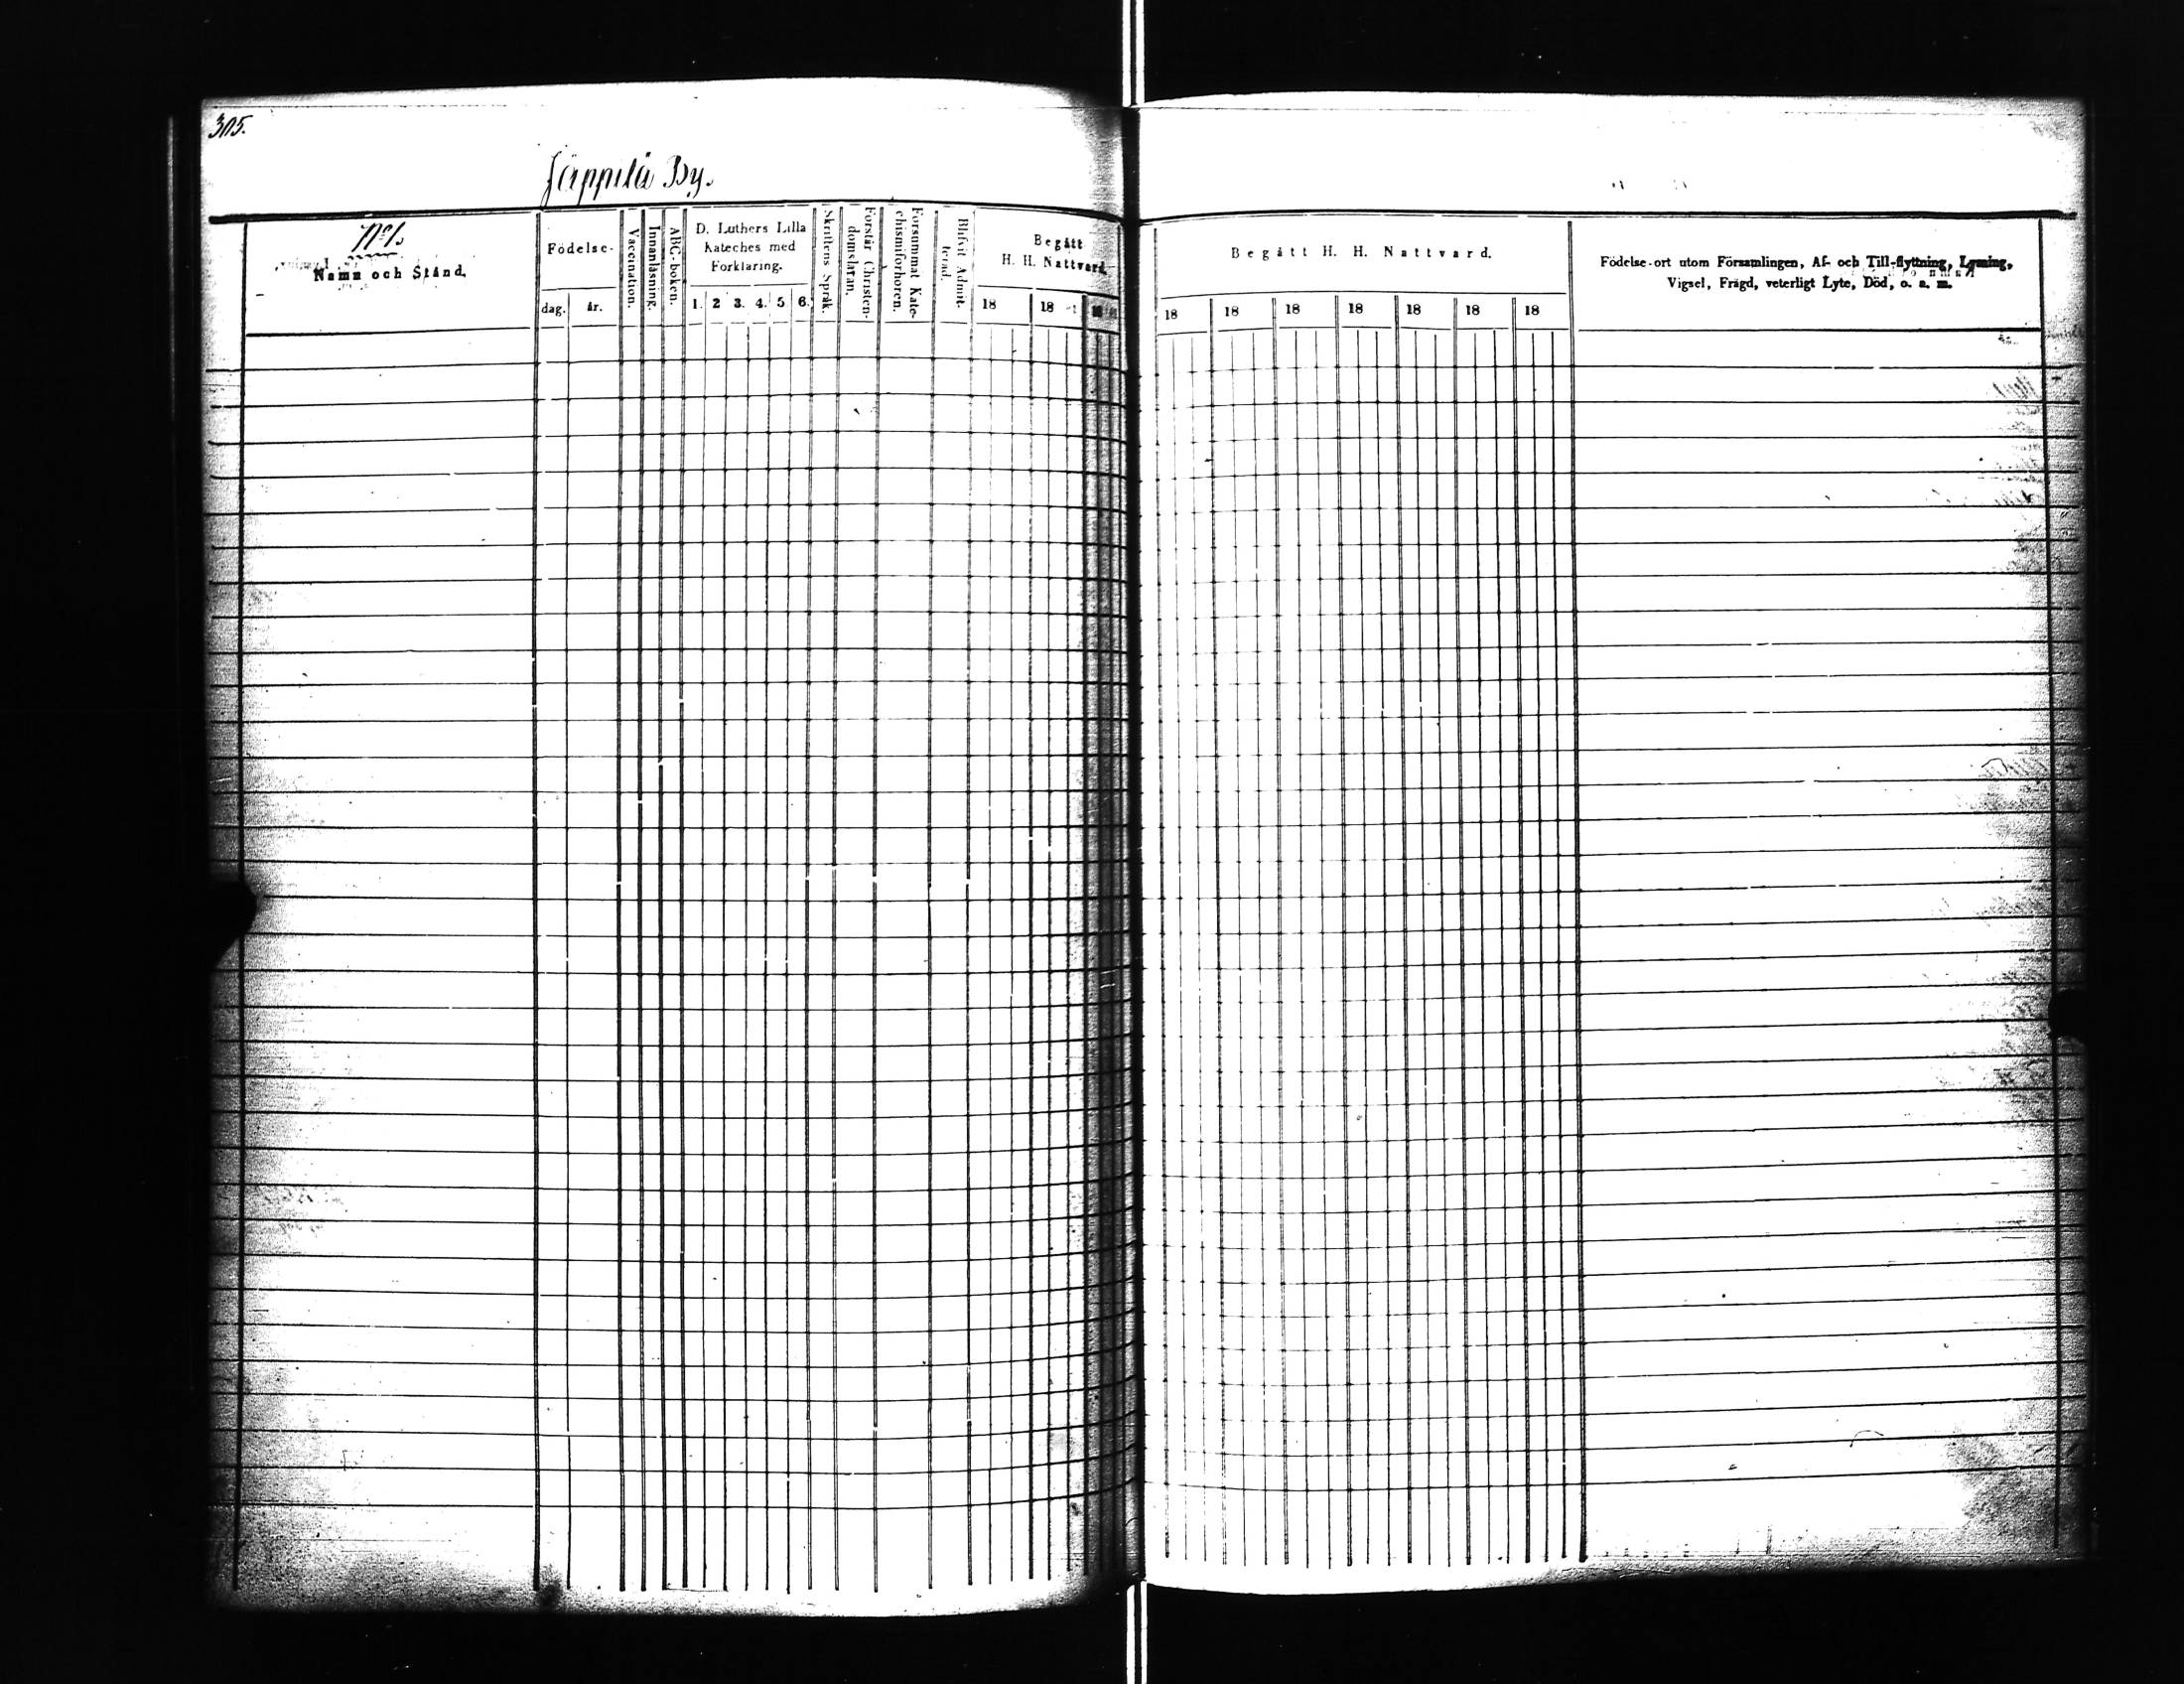 305.
Jäppilä By.
No 1.
Namn och Stånd.
Födelse-
dag.
år.
Vaccination.
Innanläsning.
ABC-boken.
D. Luthers Lilla
Kateches med
Förklaring.
1. 2 3. 4. 5 6.
Skriftens Språk.
Förstår Christen-
domsläran.
Försummat Kate-
chismiförhören.
Blifvit Admit-
terad.
Begått
H. H. Nattvard.
18 18
Begått H. H. Nattvard.
18 18 18 18 18 18 18
Födelse-ort utom Församlingen, Af- och Till-flyttning, Lysning,
Vigsel, Frägd, veterligt Lyte, Död, o. s. m.